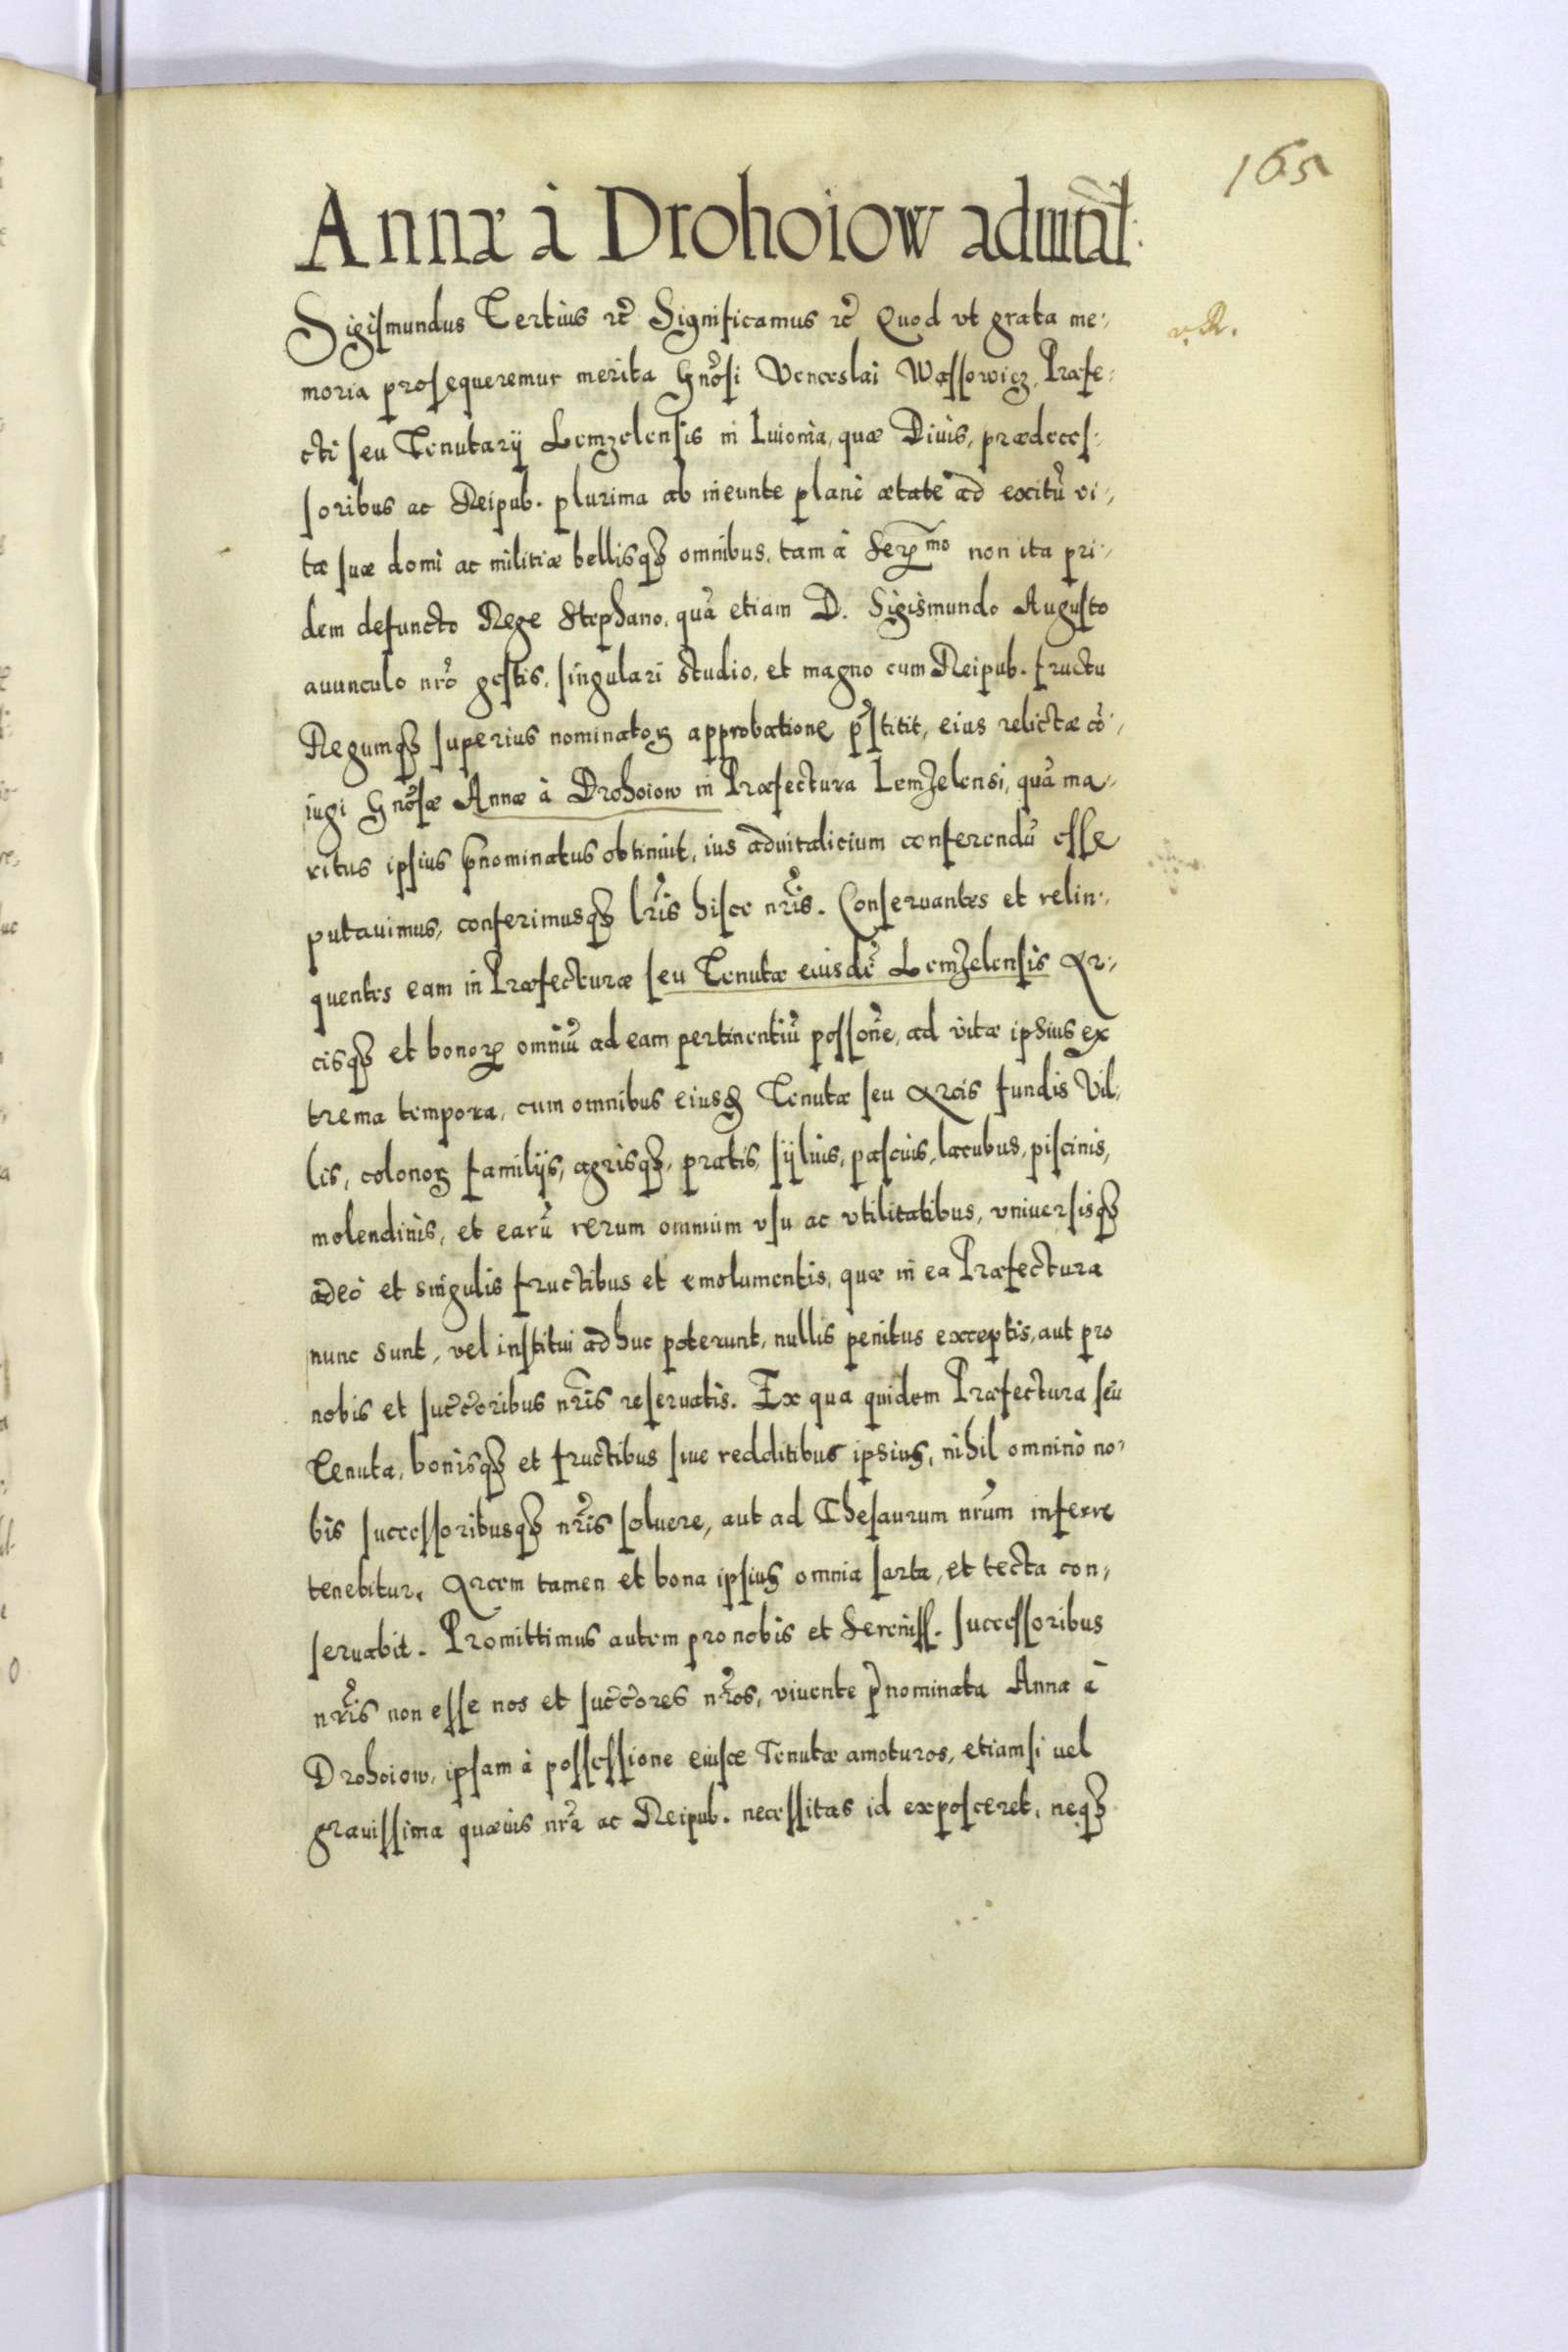 165
Annæ à Drohoiow aduitãl:
Sigismundus Tertius ꝛc̃ Significamus ꝛc̃ Quod vt grata me:
moria prosequeremur merita Gnõsi Venceslai Wąssowicz, Præfe:
cti seu Tenutarÿ Lemzelensis in Liuonia, quæ Diuis, prædeces:
soribus ac Reipub. plurima ab ineunte planè ætate ad exitũ vi:
tæ suæ domi ac militiæ bellisqꝫ omnibus, tam à Serꝑmo non ita pri:
dem defuncto Rege Stephano, quã etiam D. Sigismundo Augusto
auunculo nrõ gestis, singulari studio, et magno cum Reipub. fructu
Regumqꝫ superius nominatoꝝ approbatione p̃stitit, eius relictæ cõ:
iugi Gnõsæ Annæ à Drohoiow in Præfectura Lemzelensi, quã ma:
ritus ipsius p̃nominatus obtinuit, ius aduitalicium conferendũ esse
putauimus, conferimusqꝫ lrĩs hisce nrĩs. Conseruantes et relin:
quentes eam in Præfecturæ seu Tenutæ eiusdẽ Lemzelensis Ar:
cisqꝫ et bonoꝝ omniũ ad eam pertinentiũ possõne, ad vitæ ipsius ex
trema tempora, cum omnibus eiusꝗ Tenutæ seu Arcis fundis Vil:
lis, colonoꝝ familÿs, agrisqꝫ, pratis, sÿluis, pascuis, lacubus, piscinis,
molendinis, et earũ rerum omnium vsu ac vtilitatibus, vniuersisqꝫ
adeò et singulis fructibus et emolumentis, quæ in ea Præfectura
nunc sunt, vel institui adhuc poterunt, nullis penitus exceptis, aut pro
nobis et succ̃oribus nrĩs reseruatis. Ex qua quidem Præfectura seu
Tenuta, bonisqꝫ et fructibus siue redditibus ipsius, nihil omninò no:
bis successoribusqꝫ nrĩs soluere, aut ad Thesaurum nrũm inferre
tenebitur, Arcem tamen et bona ipsius omnia sarta, et tecta con:
seruabit. Promittimus autem pro nobis et Sereniss. successoribus
nrĩs non esse nos et succ̃ores nrõs, viuente p̃nominata Anna à
Drohoiow, ipsam à possessione eiusce Tenutæ amoturos, etiamsi vel
grauissima quæuis nrã ac Reipub. necessitas id exposceret, neqꝫ